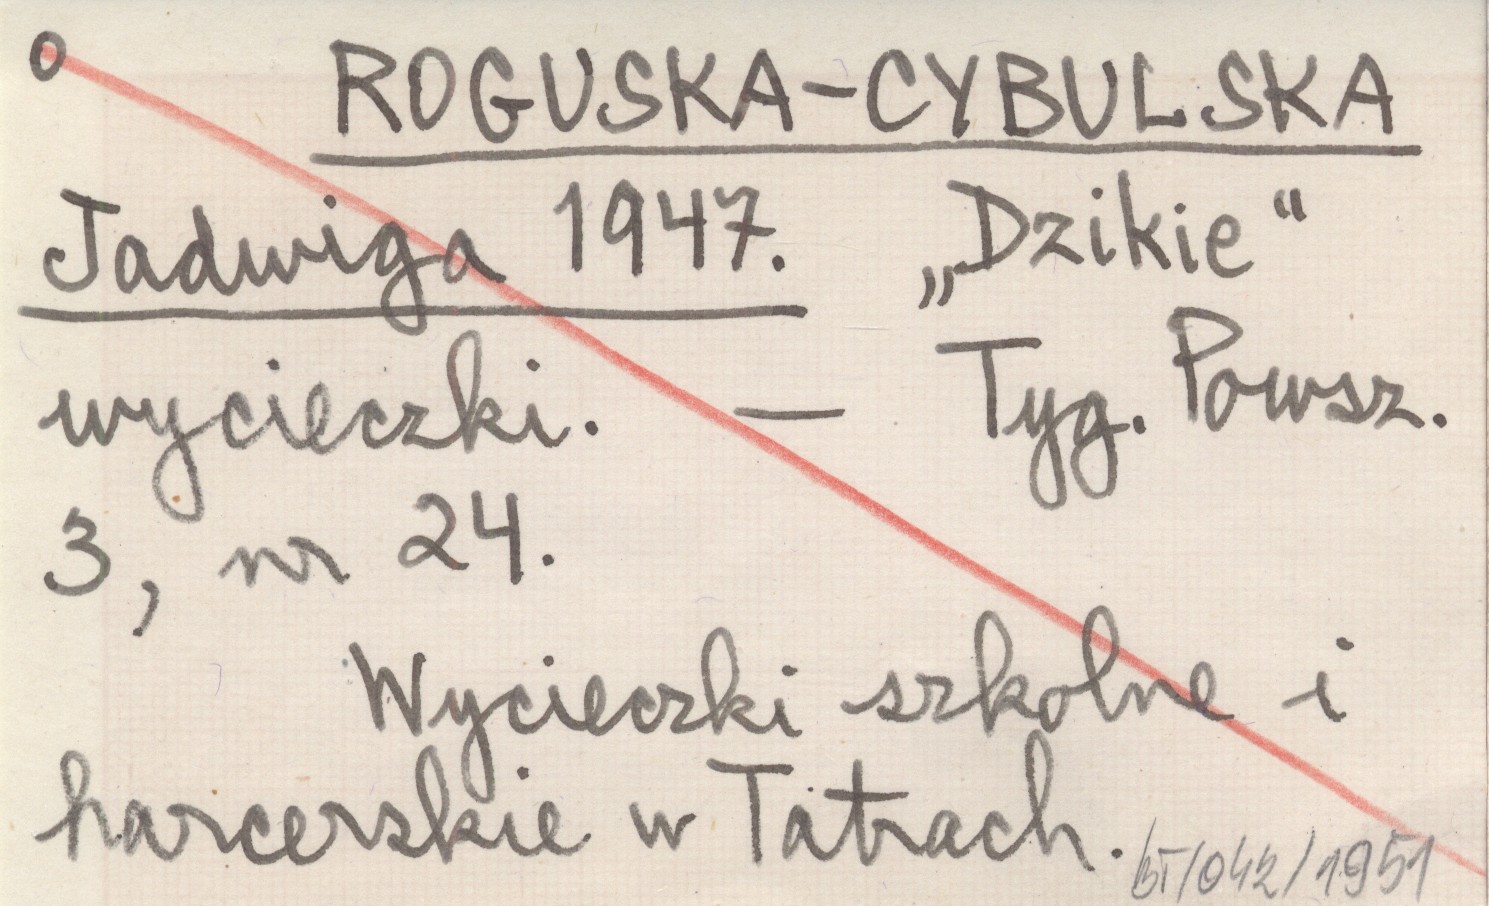 o ROGUSKA-CYBULSKA
Jadwiga 1947. „Dzikie“
wycieczki. — Tyg. Powsz.
3, nr 24.
Wycieczki szkolne i
harcerskie w Tatrach.
/042/1951